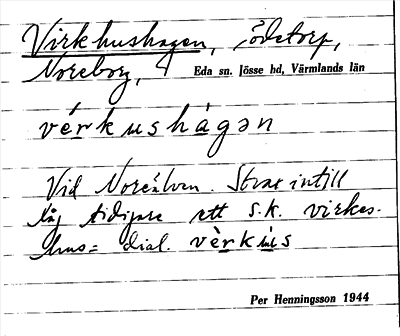 Virkhushagen, ödetorp,
Noreborg, Eda sn. Jösse hd, Värmlands län
vèrkushágən
Vid Norsälven. Strax intill
låg tidigare ett s.k. virkes-
hus = dial. vèrkùs
Per Henningsson 1944